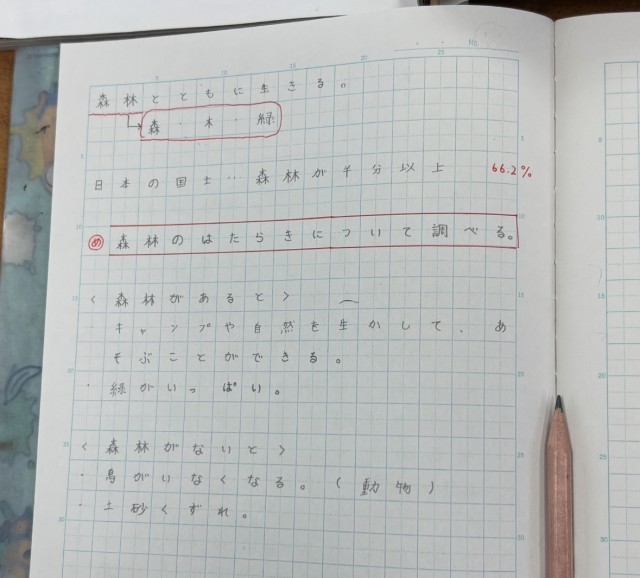 No.
5 10 15 20 25
森林とともに生きる。
森・木・緑
日本の国土…森林が半分以上 66.2%
め 森林のはたらきについて調べる。
〈森林があると〉
・キャンプや自然を生かして、あ
そぶことができる。
・緑がいっぱい。
〈森林がないと〉
・鳥がいなくなる。(動物)
・土砂くずれ。